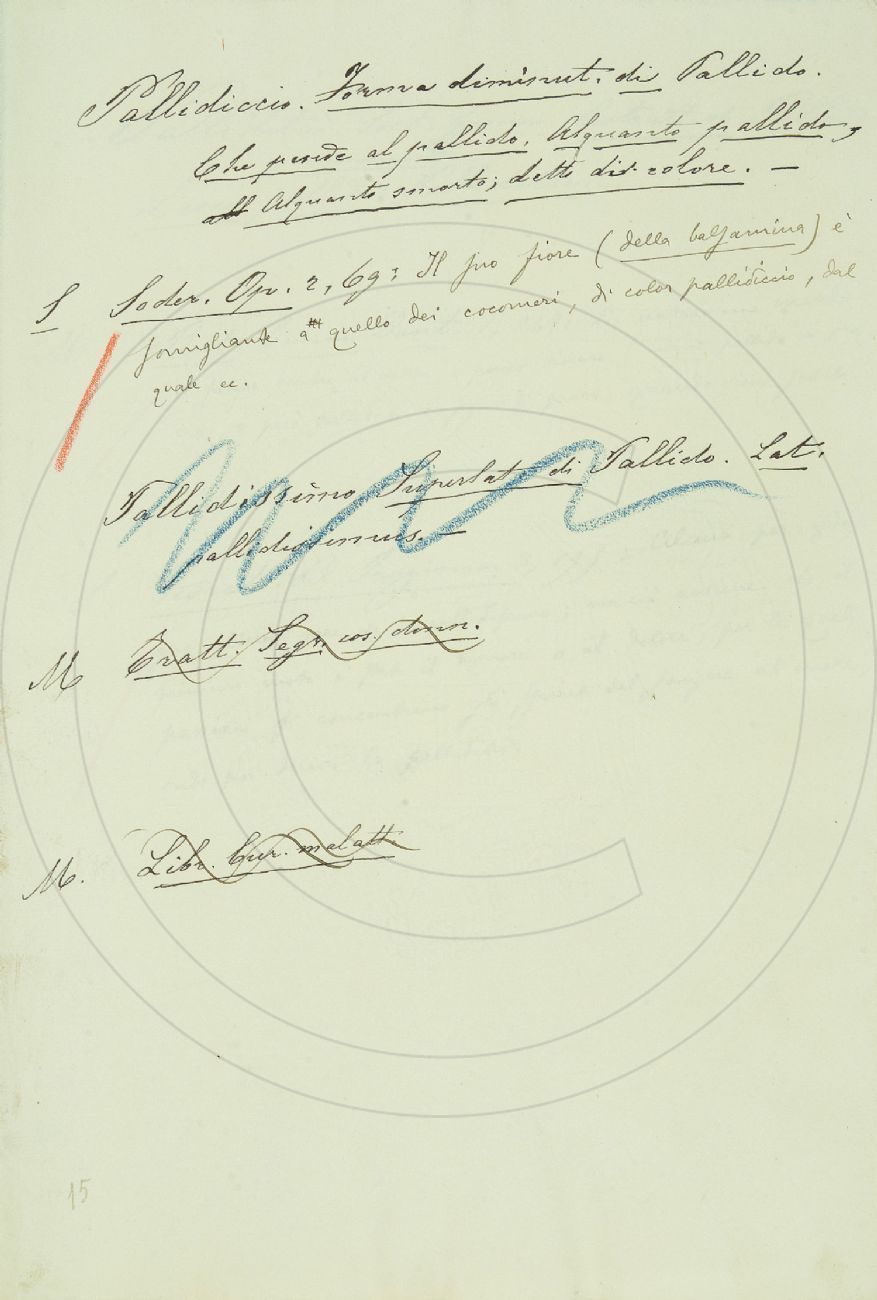 Pallidiccio. Forma diminut. di Pallido.
Che pende al pallido, Alquanto pallido,
Alquanto smorto; detto di colore. —
S Soder. Op. 2, 69: Il suo fiore (della balsamina) è
somigliante a quello dei cocomeri, di color pallidiccio, dal
quale ec.
Pallidissimo Superlat. di Pallido. Lat.
pallidissimus. —
M Tratt. Segr. cos. donn.
M. Libr. Cur. malatt.
15